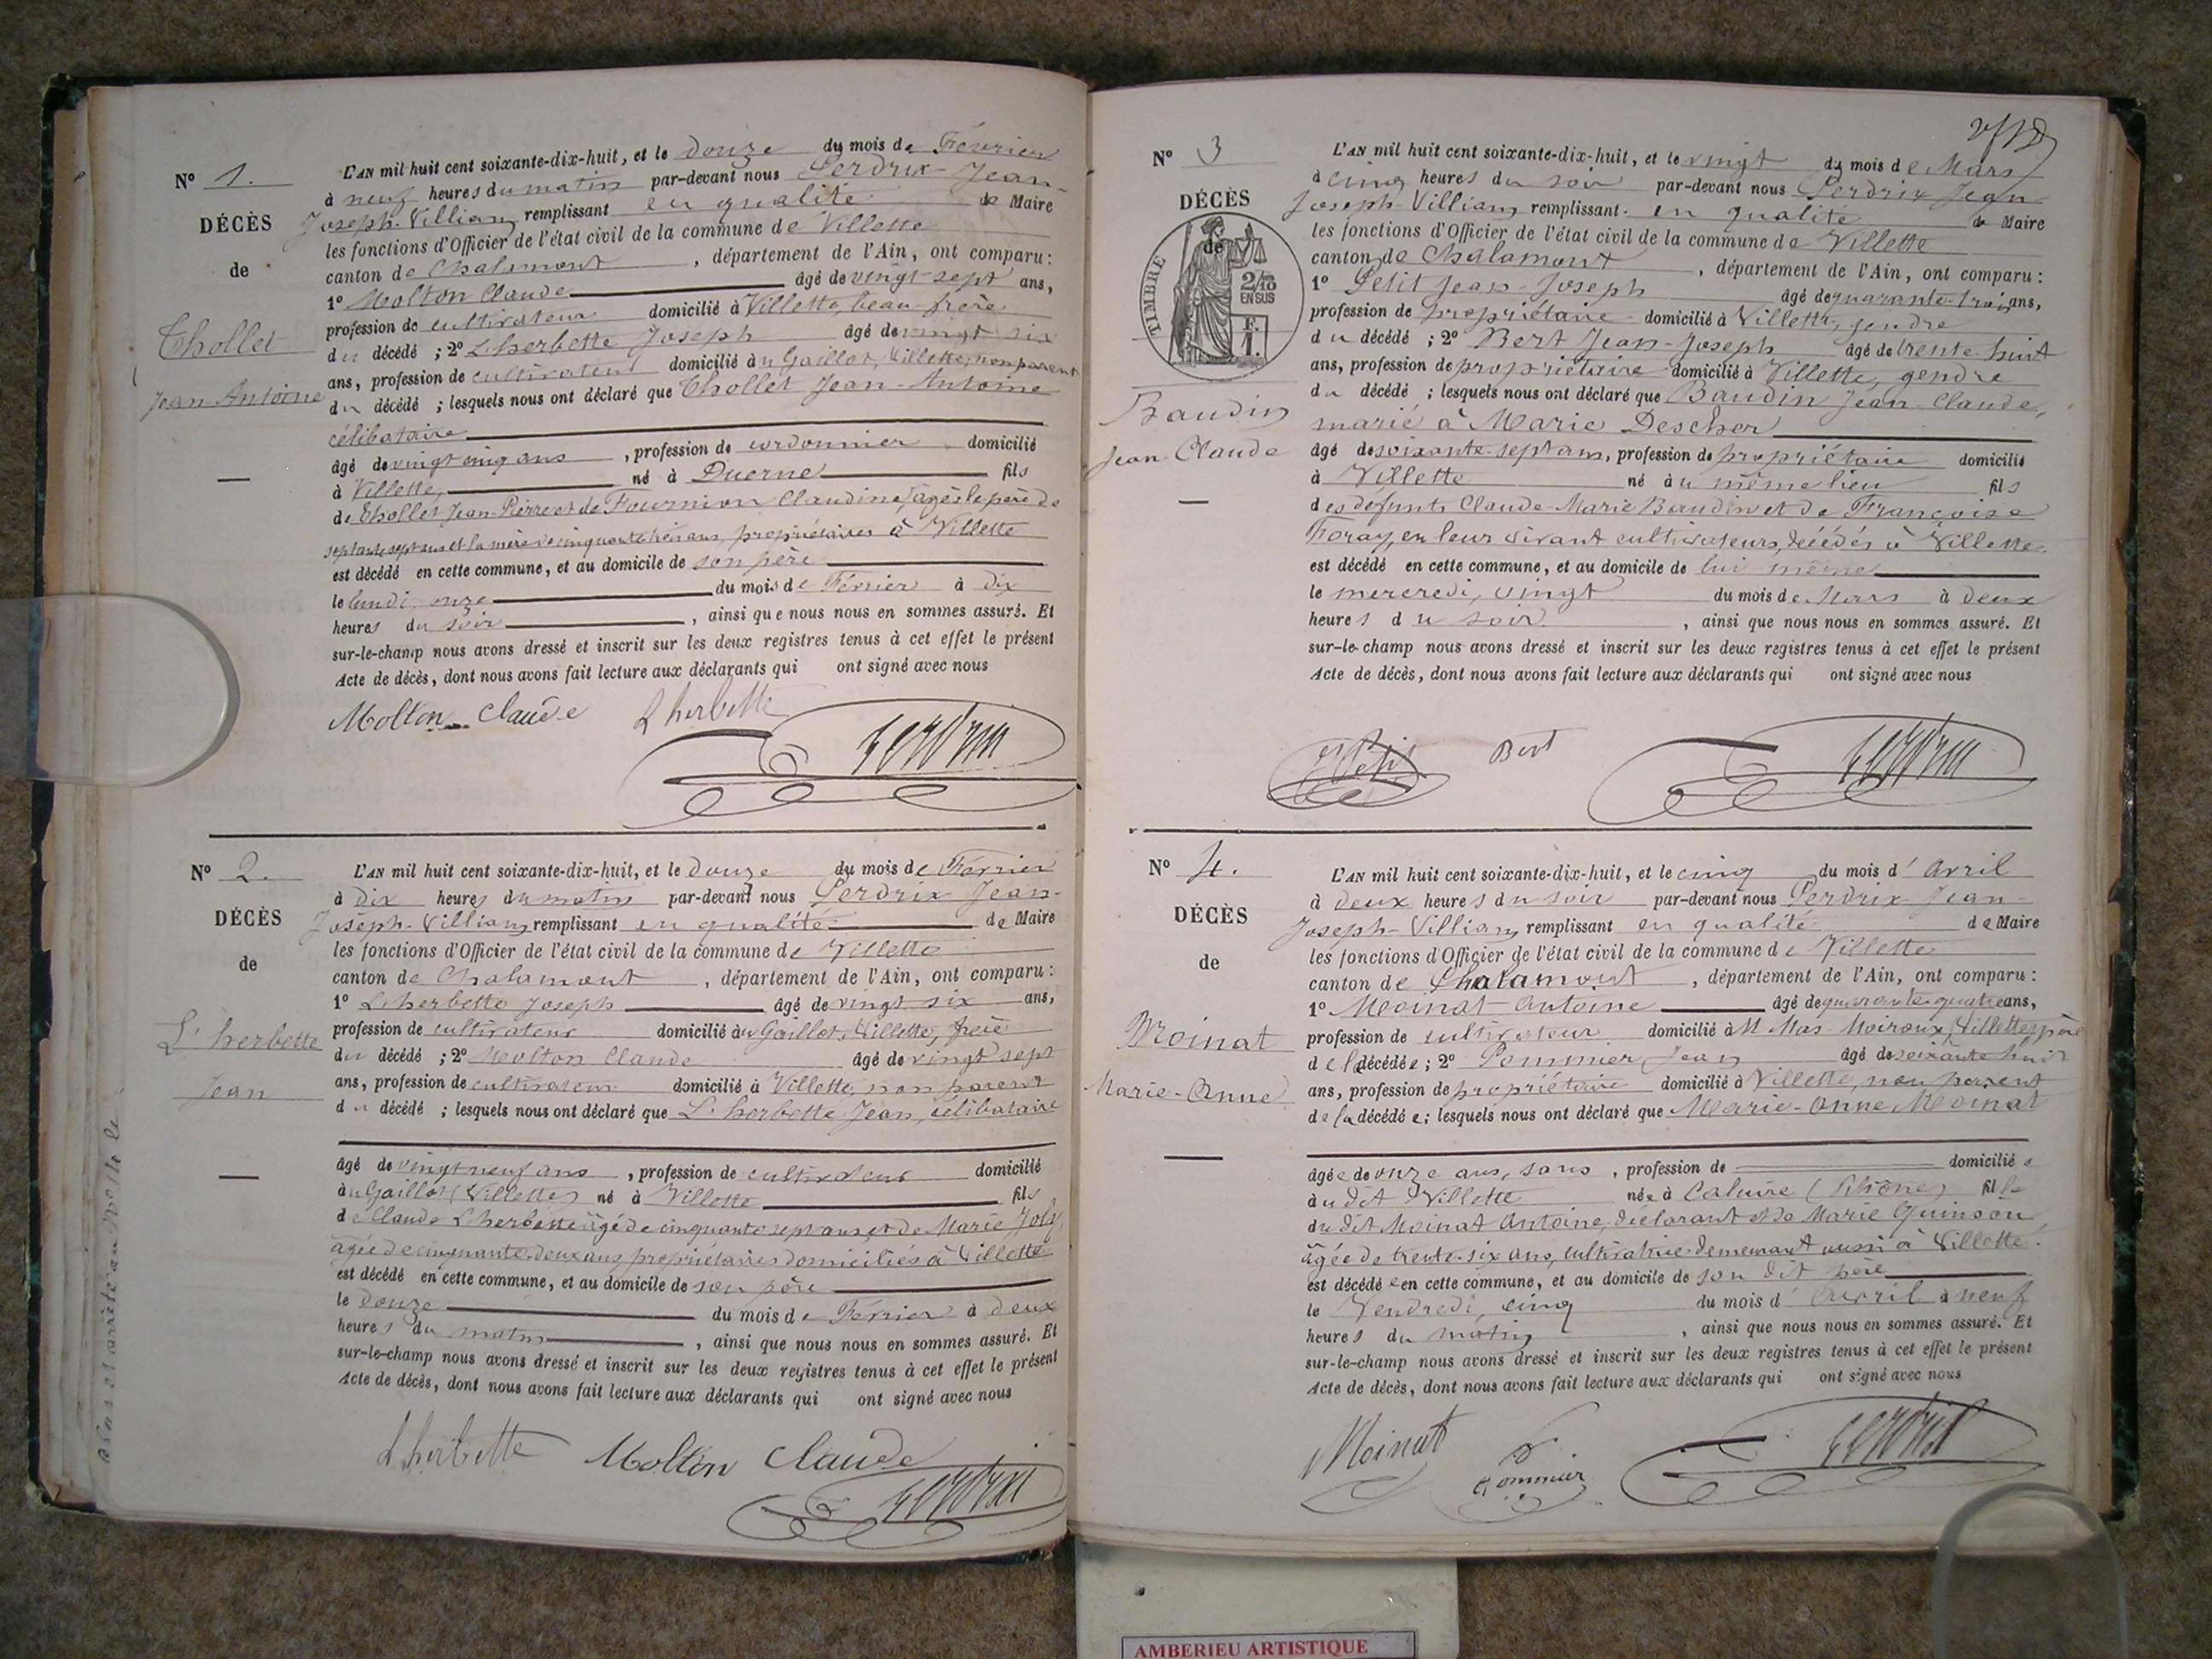 N° 1.
DÉCÈS
de
Thollet
Jean Antoine
L'AN mil huit cent soixante-dix-huit, et le douze du mois de Février
à neuf heures du matin par-devant nous Perdrix Jean-
Joseph-Villiam remplissant en qualité de Maire
les fonctions d'Officier de l'état civil de la commune de Villette
canton de Chalamont, département de l'Ain, ont comparu :
1° Molton Claude âgé de vingt sept ans,
profession de cultivateur domicilié à Villette, beau-frère
du décédé ; 2° Lherbette Joseph âgé de vingt six
ans, profession de cultivateur domicilié au Gaillot, Villette, non parent
du décédé ; lesquels nous ont déclaré que Thollet Jean-Antoine
célibataire
âgé de vingt cinq ans, profession de cordonnier domicilié
à Villette, né à Duerne fils
de Thollet Jean-Pierre et de Fournion Claudine, âgés le père de
septante sept ans et la mère de cinquante trois ans, propriétaires à Villette
est décédé en cette commune, et au domicile de son père
le lundi onze du mois de Février à dix
heures du soir, ainsi que nous nous en sommes assuré. Et
sur-le-champ nous avons dressé et inscrit sur les deux registres tenus à cet effet le présent
Acte de décès, dont nous avons fait lecture aux déclarants qui ont signé avec nous
Molton Claude Lherbette Perdrix
N° 2.
DÉCÈS
de
L'herbette
Jean
L'AN mil huit cent soixante-dix-huit, et le douze du mois de Février
à dix heures du matin par-devant nous Perdrix Jean-
Joseph-Villiam remplissant en qualité de Maire
les fonctions d'Officier de l'état civil de la commune de Villette
canton de Chalamont, département de l'Ain, ont comparu :
1° Lherbette Joseph âgé de vingt six ans,
profession de cultivateur domicilié au Gaillot, Villette, frère
du décédé ; 2° Molton Claude âgé de vingt sept
ans, profession de cultivateur domicilié à Villette, non parent
du décédé ; lesquels nous ont déclaré que L'herbette Jean, célibataire
âgé de vingt neuf ans, profession de cultivateur domicilié
au Gaillot (Villette) né à Villette fils
de Claude Lherbette âgé de cinquante sept ans et de Marie Joly,
âgée de cinquante-deux ans propriétaires domiciliés à Villette
est décédé en cette commune, et au domicile de son père
le douze du mois de Février à deux
heures du matin, ainsi que nous nous en sommes assuré. Et
sur-le-champ nous avons dressé et inscrit sur les deux registres tenus à cet effet le présent
Acte de décès, dont nous avons fait lecture aux déclarants qui ont signé avec nous
Lherbette Molton Claude
Perdrix
N° 3
DÉCÈS
de
TIMBRE
2/10
EN SUS
Baudin
Jean-Claude
L'AN mil huit cent soixante-dix-huit, et le vingt du mois de Mars
à cinq heures du soir par-devant nous Perdrix Jean
Joseph-Villiam remplissant en qualité de Maire
les fonctions d'Officier de l'état civil de la commune de Villette
canton de Chalamont, département de l'Ain, ont comparu :
1° Petit Jean-Joseph âgé de quarante-trois ans,
profession de propriétaire domicilié à Villette, gendre
du décédé ; 2° Bert Jean-Joseph âgé de trente-huit
ans, profession de propriétaire domicilié à Villette, gendre
du décédé ; lesquels nous ont déclaré que Baudin Jean-Claude,
marié à Marie Descher
âgé de soixante-sept ans, profession de propriétaire domicilié
à Villette né au même lieu fils
des défunts Claude-Marie Baudin et de Françoise
Foray, en leur vivant cultivateurs, décédés à Villette.
est décédé en cette commune, et au domicile de lui-même
le mercredi, vingt du mois de Mars à deux
heures du soir, ainsi que nous nous en sommes assuré. Et
sur-le-champ nous avons dressé et inscrit sur les deux registres tenus à cet effet le présent
Acte de décès, dont nous avons fait lecture aux déclarants qui ont signé avec nous
Petit Bert Perdrix
N° 4.
DÉCÈS
de
Moinat
Marie-Anne
L'AN mil huit cent soixante-dix-huit, et le cinq du mois d'Avril
à deux heures du soir par-devant nous Perdrix Jean-
Joseph-Villiam remplissant en qualité de Maire
les fonctions d'Officier de l'état civil de la commune de Villette
canton de Chalamont, département de l'Ain, ont comparu :
1° Moinat Antoine âgé de quarante quatre ans,
profession de cultivateur domicilié à Mas-Moiroux, Villette, père
de la décédée ; 2° Pommier Jean âgé de soixante huit
ans, profession de propriétaire domicilié à Villette, non parent
de la décédée ; lesquels nous ont déclaré que Marie-Anne Moinat
âgée de onze ans, sans, profession de domiciliée
audit Villette née à Caluire (Rhône) fille
du dit Moinat Antoine, déclarant et de Marie Quinson
âgée de trente-six ans, cultivatrice demeurant aussi à Villette.
est décédée en cette commune, et au domicile de son dit père
le Vendredi, cinq du mois d'Avril à neuf
heures du matin, ainsi que nous nous en sommes assuré. Et
sur-le-champ nous avons dressé et inscrit sur les deux registres tenus à cet effet le présent
Acte de décès, dont nous avons fait lecture aux déclarants qui ont signé avec nous
Moinat Pommier Perdrix
AMBERIEU ARTISTIQUE